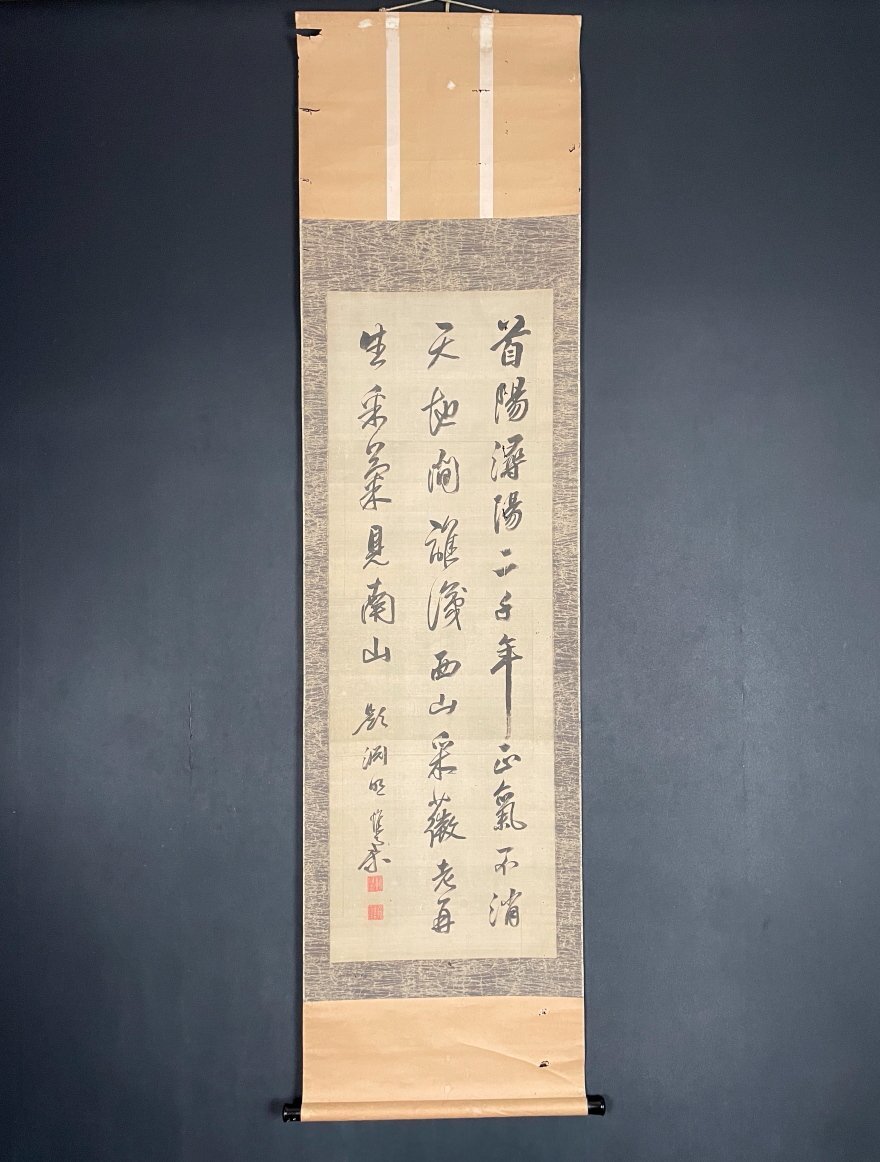 首陽潯陽二千年正氣不消
天地間誰識西山采薇老再
生采菊見南山 題淵明